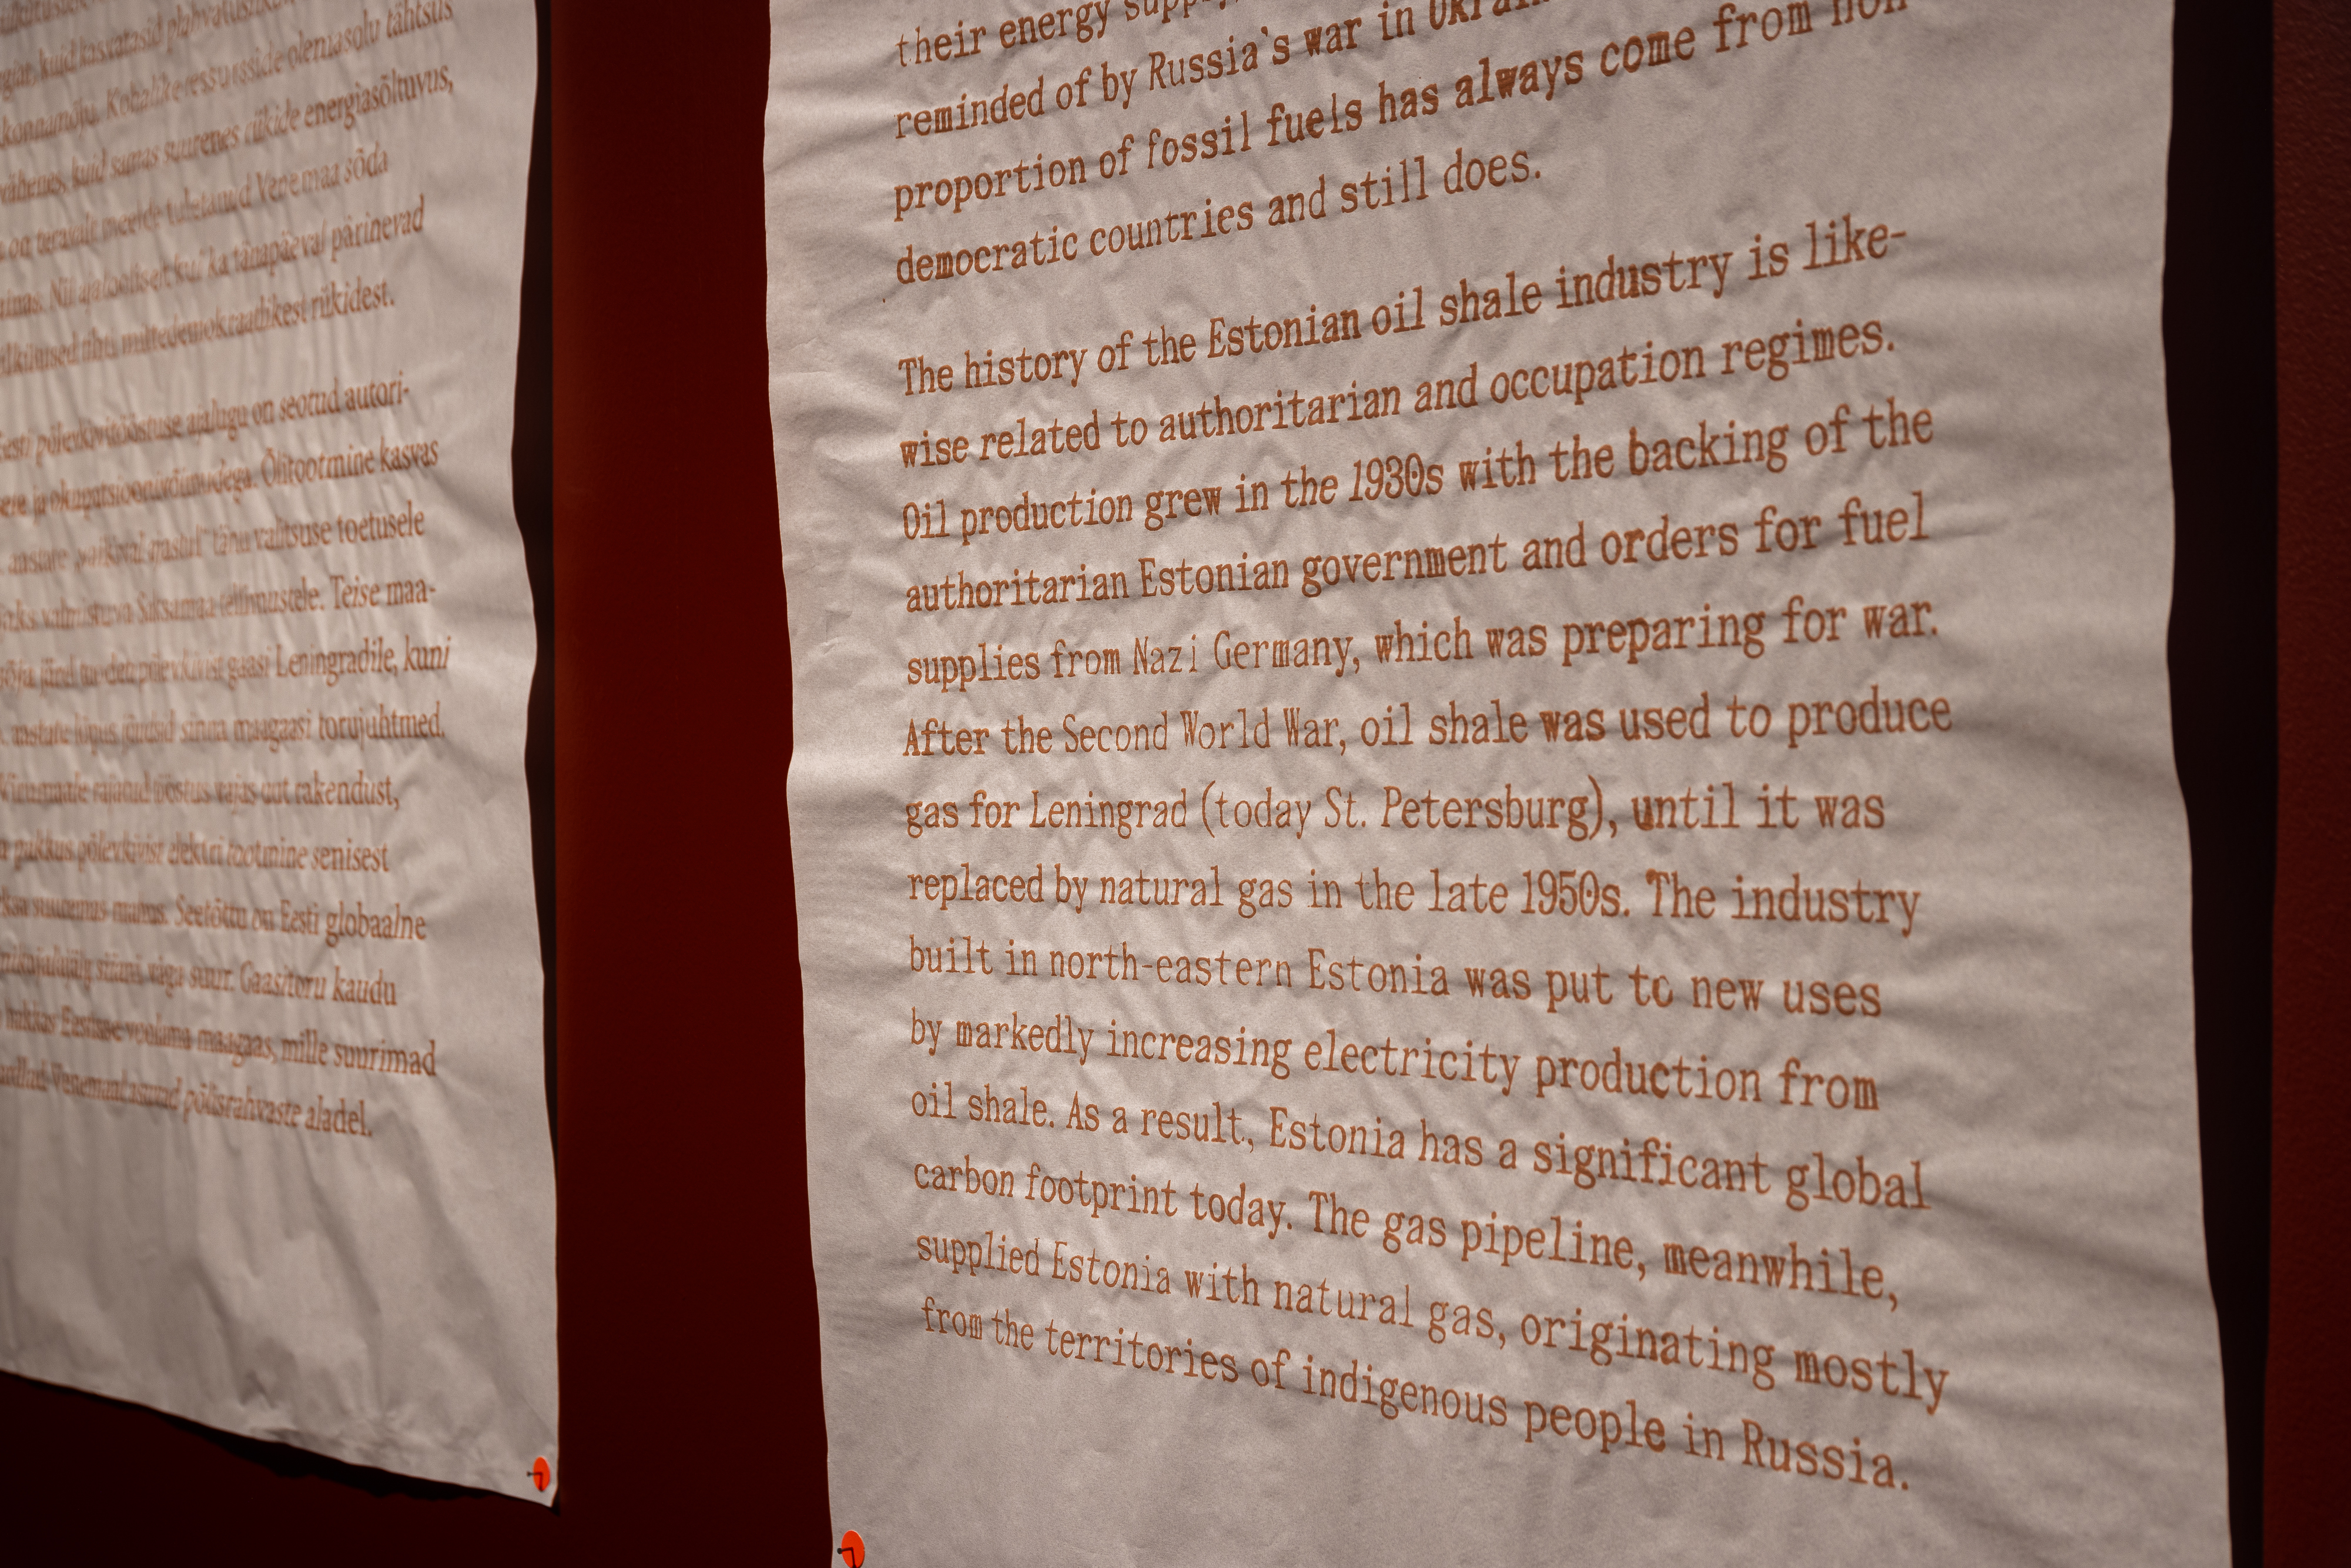 tähtsus
konnamõju. Kohalike ressursside olemasolu
vähenes, kuid samas suurenes riikide energiasõltuvus,
on teravalt meelde tuletanud Venemaa sõda
Nii ajalooliselt kui ka tänapäeval pärinevad
mittedemokraatlikest riikidest.
Eesti põlevkivitööstuse ajalugu on seotud autori-
ja okupatsioonirežiimidega. Õlitootmine kasvas
tänu valitsuse toetusele
valmistuva Saksamaa tellimustele. Teise maa-
gaasi Leningradile, kuni
aastate lõpus jõudsid sinna maagaasi torujuhtmed.
rajatud tööstus vajas uut rakendust,
pakkus põlevkivist elektri tootmine senisest
mahus. Seetõttu on Eesti globaalne
väga suur. Gaasitoru kaudu
hakkas Eestisse voolama maagaas, mille suurimad
põlisrahvaste aladel.
their energy supply,
reminded of by Russia's war in
proportion of fossil fuels has always come from non
democratic countries and still does.
The history of the Estonian oil shale industry is like-
wise related to authoritarian and occupation regimes.
Oil production grew in the 1930s with the backing of the
authoritarian Estonian government and orders for fuel
supplies from Nazi Germany, which was preparing for war.
After the Second World War, oil shale was used to produce
gas for Leningrad (today St. Petersburg), until it was
replaced by natural gas in the late 1950s. The industry
built in north-eastern Estonia was put to new uses
by markedly increasing electricity production from
oil shale. As a result, Estonia has a significant global
carbon footprint today. The gas pipeline, meanwhile,
supplied Estonia with natural gas, originating mostly
from the territories of indigenous people in Russia.